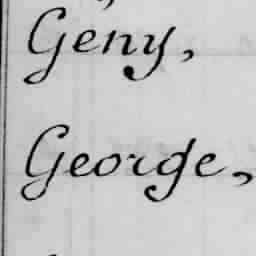 Geny,
George,